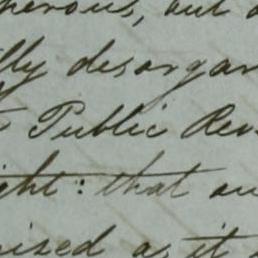 perous, but
lly disorgan
Public Rev
ight: that au
nised as it